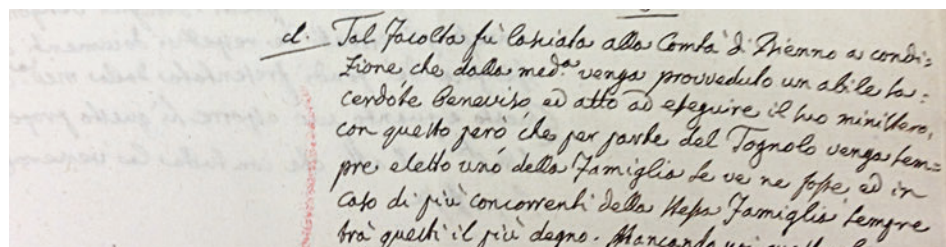 d. Tal Facoltà fù lasciata alla Comtà di Bienno a condi=
zione che dalla med.a venga provveduto un abile sa=
cerdote beneviso ed atto ad eseguire il suo ministero,
con questo però che per parte del Tognolo venga sem=
pre eletto uno della Famiglia se ve ne fosse ed in
caso di più concorrenti della stessa Famiglia sempre
trà questi il più degno. Mancando